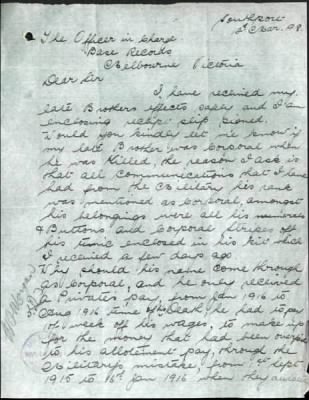 The Officer in Charge
Base Records
Melbourne Victoria
Dear Sir
I have received my
late Brothers effects safely and I am
enclosing receipt slip signed.
Would you kindly let me know if
my late Brother was Corporal when
he was killed, the reason I ask is
that all communications that I have
had from the Military his rank
was mentioned as Corporal, amongst
his belongings were all his
& Buttons and Corporal Stripes off
his tunic enclosed in his kit which
I received a few days ago
Why should his name come through
as Corporal, and he only received
a Privates pay, from Jan 1916 to
Aug 1916 time of his Death he had to pay
week off his wages, to make up
for the money that had been overpaid
to his allotment pay, through the
Military's mistake, from 1st Sept
1915 to 16th Jan 1916 when they